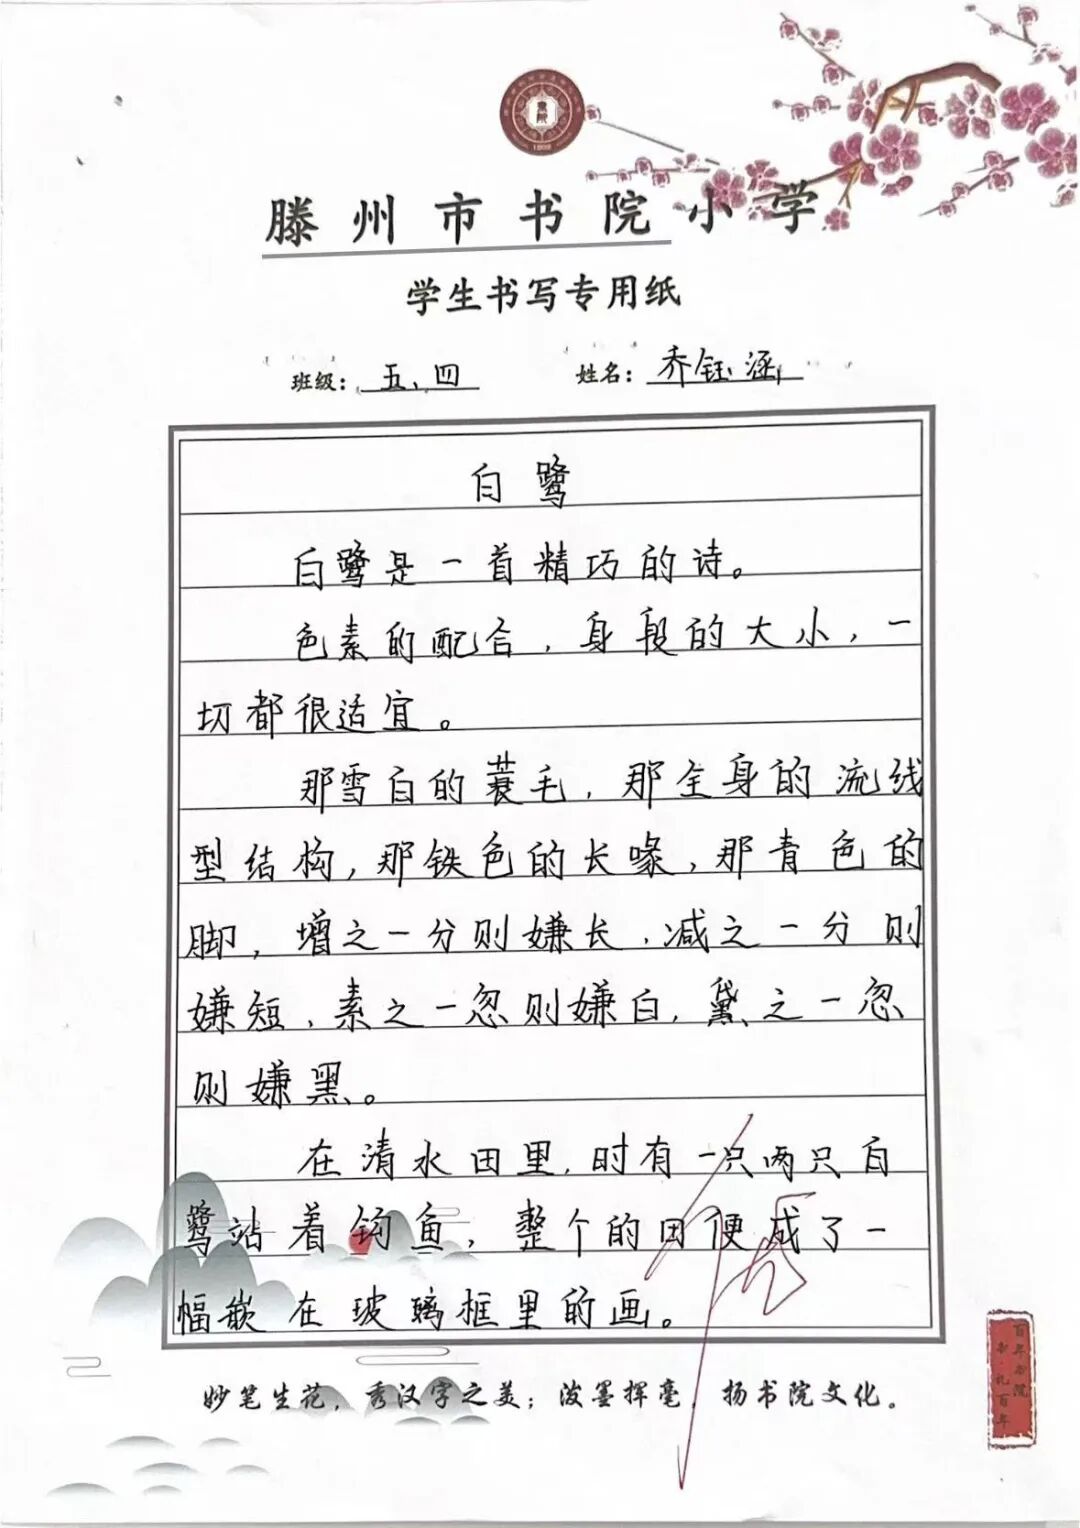 滕州市书院小学
学生书写专用纸
班级：五.四 姓名：乔钰涵
白鹭
白鹭是一首精巧的诗。
色素的配合，身段的大小，一
切都很适宜。
那雪白的蓑毛，那全身的流线
型结构，那铁色的长喙，那青色的
脚，增之一分则嫌长，减之一分则
嫌短，素之一忽则嫌白，黛之一忽
则嫌黑。
在清水田里，时有一只两只白
鹭站着钓鱼，整个的田便成了一
幅嵌在玻璃框里的画。
妙笔生花，秀汉字之美；泼墨挥毫，扬书院文化。
百年书院
书礼百年